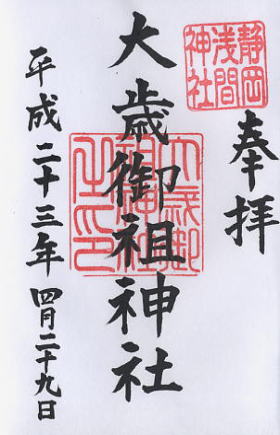 奉拝
静岡
浅間
神社
大歳御祖神社
大歳御
祖神社
之印
平成二十三年 四月二十九日